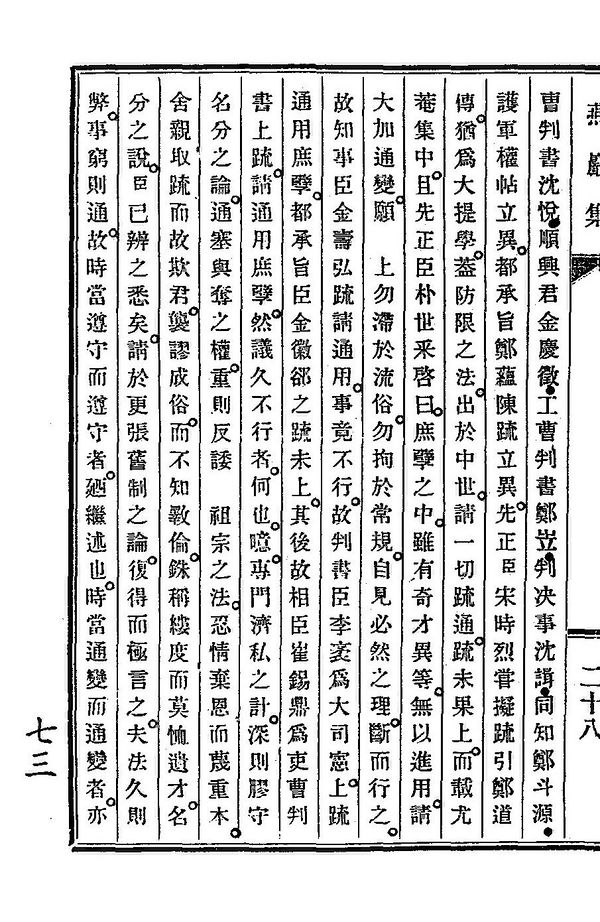 燕巖集
二十八
曹判書沈悅順興君金慶徵工曹判書鄭岦判决事沈諿同知鄭斗源
護軍權帖立異都承旨鄭蘊陳疏立異先正臣宋時烈嘗擬疏引鄭道
傳猶爲大提學蓋防限之法出於中世請一切疏通疏未果上而載尤
菴集中且先正臣朴世采啓曰庶孼之中雖有奇才異等無以進用請
大加通變願　上勿滯於流俗勿拘於常規自見必然之理斷而行之
故知事臣金壽弘疏請通用事竟不行故判書臣李袤爲大司憲上疏
通用庶孼都承旨臣金徽郤之疏未上其後故相臣崔錫鼎爲吏曹判
書上疏請通用庶孼然議久不行者何也噫專門濟私之計深則膠守
名分之論通塞與奪之權重則反諉　祖宗之法忍情棄恩而蔑重本
舍親取疏而故欺君襲謬成俗而不知斁倫銖稱縷度而莫恤遺才名
分之說臣已辨之悉矣請於更張舊制之論復得而極言之夫法久則
弊事窮則通故時當遵守而遵守者廼繼述也時當通變而通變者亦
七三